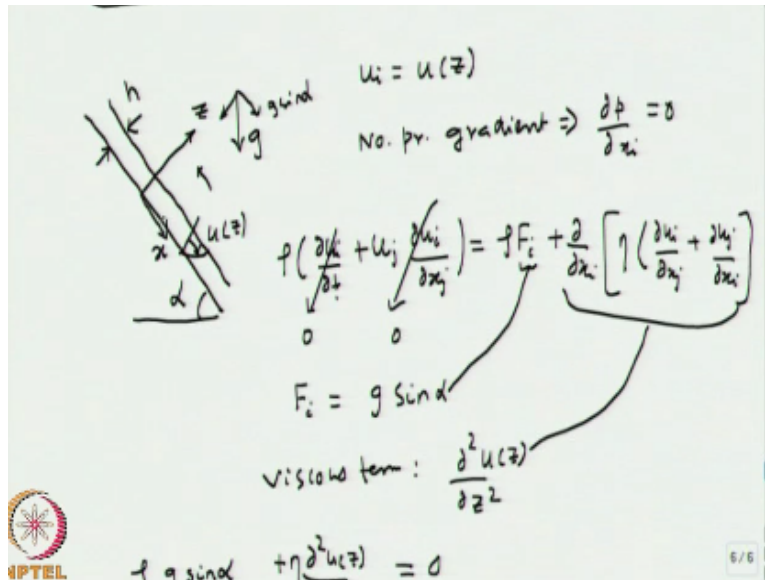 h
z
g sinα
g
x
u(z)
α
u_i = u(z)
No. pr. gradient ⇒ ∂p/∂x_i = 0
ρ(∂u_i/∂t + u_j ∂u_i/∂x_j) = ρF_i + ∂/∂x_i [η(∂u_i/∂x_j + ∂u_j/∂x_i)]
0 0
F_i = g sinα
Viscous term : ∂²u(z)/∂z²
ρ g sinα + η∂²u(z) = 0
NPTEL
6/6